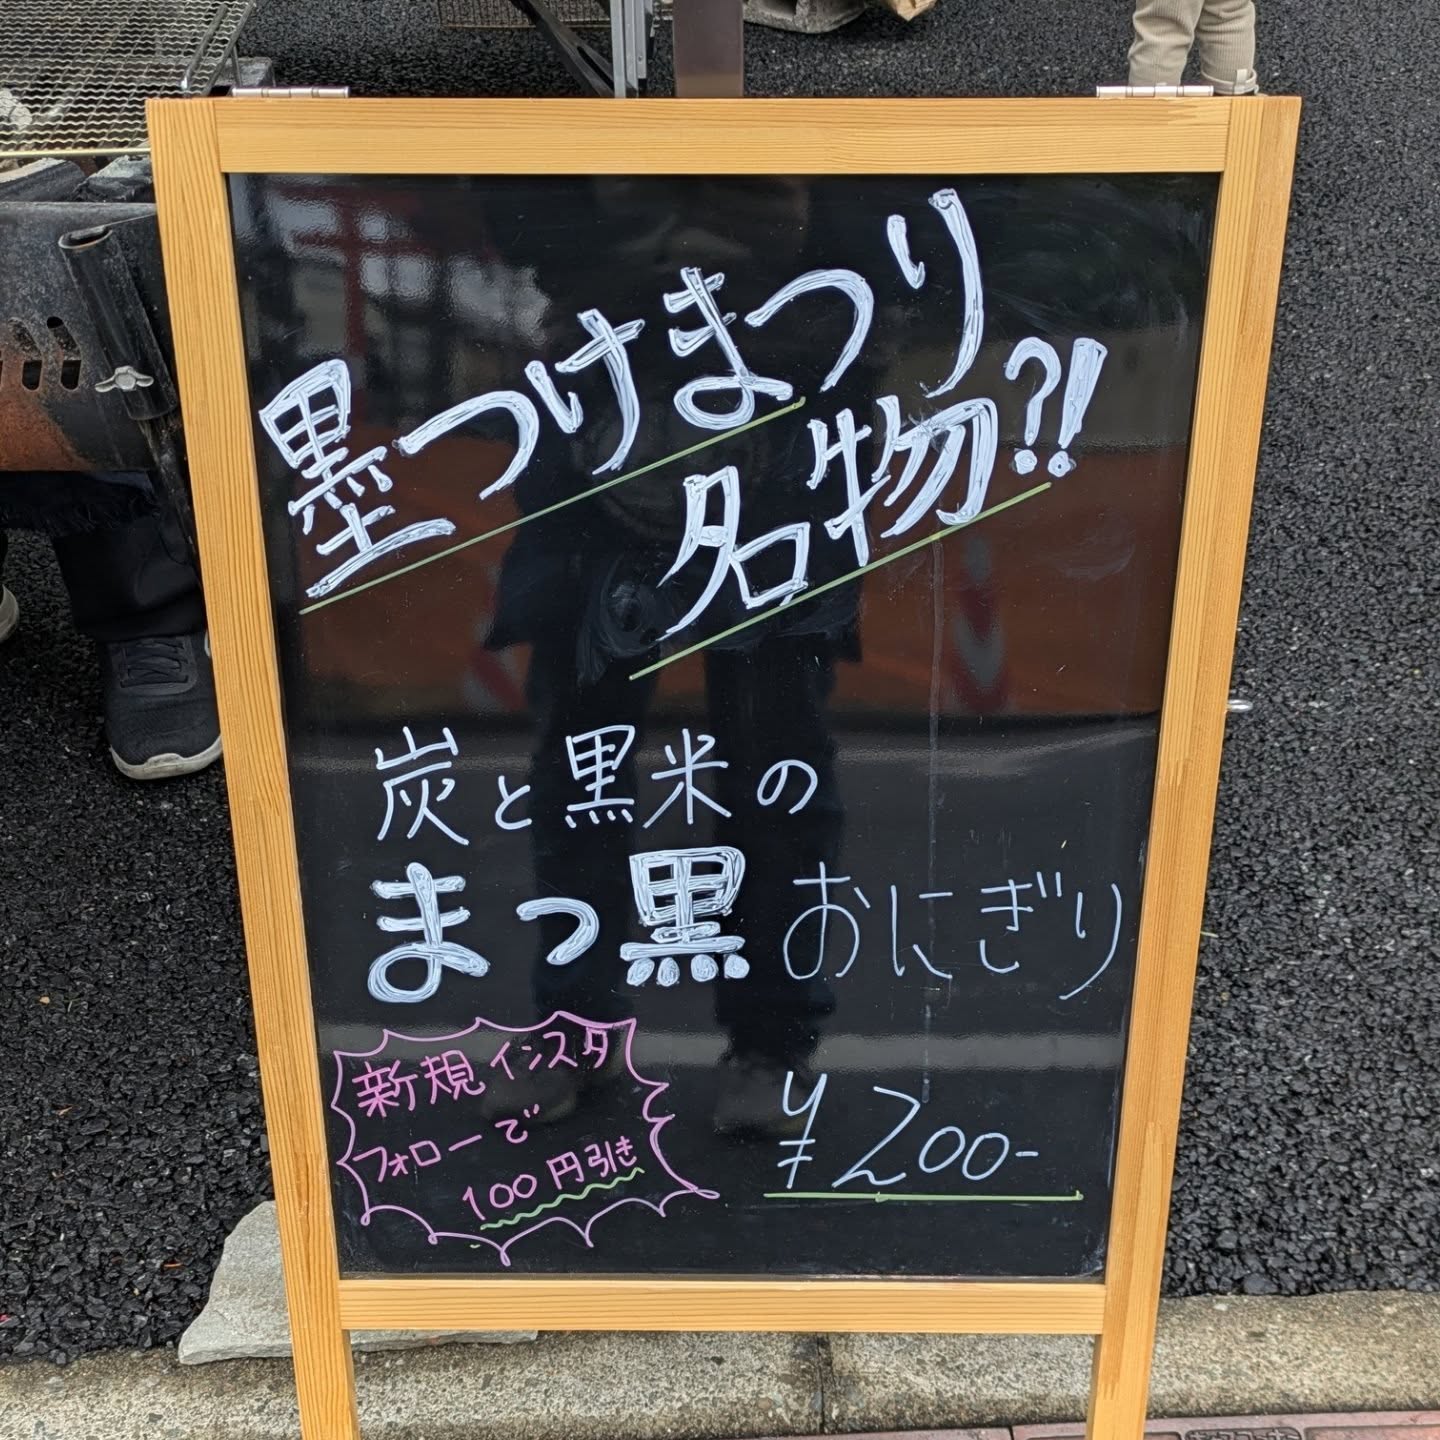 墨つけまつり
名物?!
炭と黒米の
まっ黒おにぎり
新規インスタ
フォローで
100円引き
¥200-